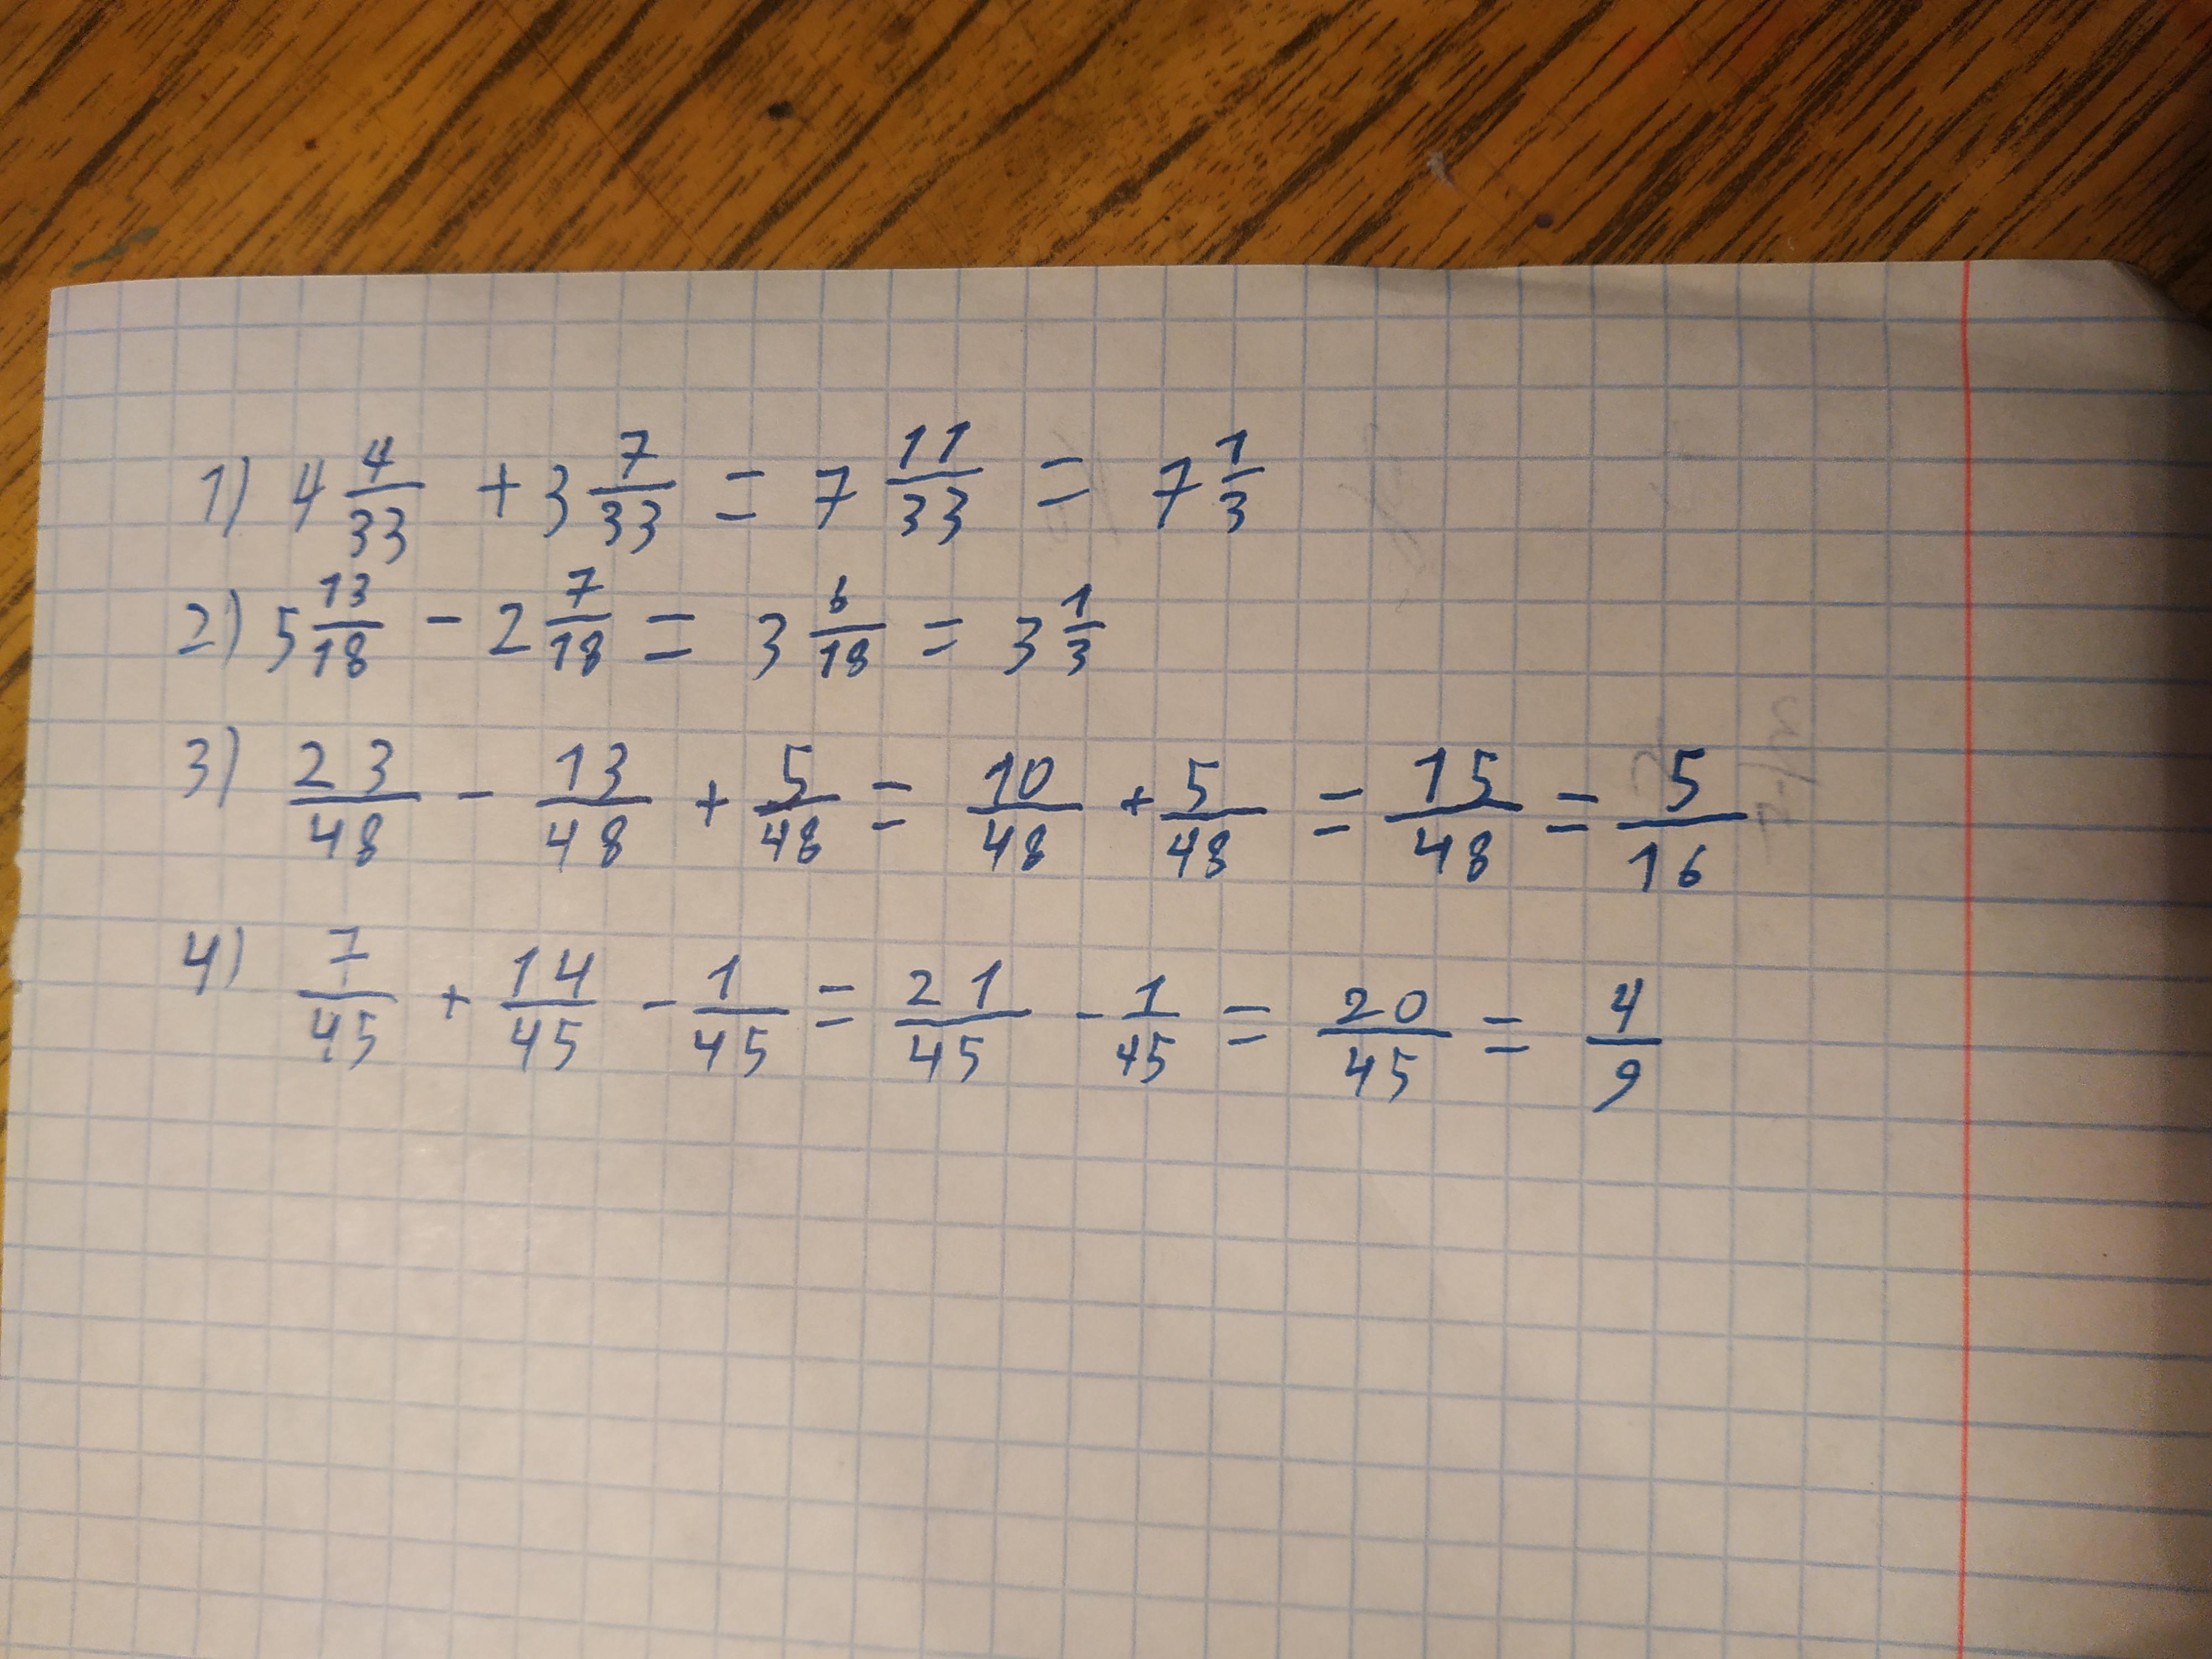 1) 4 4/33 + 3 7/33 = 7 11/33 = 7 1/3
2) 5 13/18 - 2 7/18 = 3 6/18 = 3 1/3
3) 23/48 - 13/48 + 5/48 = 10/48 + 5/48 = 15/48 = 5/16
4) 7/45 + 14/45 - 1/45 = 21/45 - 1/45 = 20/45 = 4/9